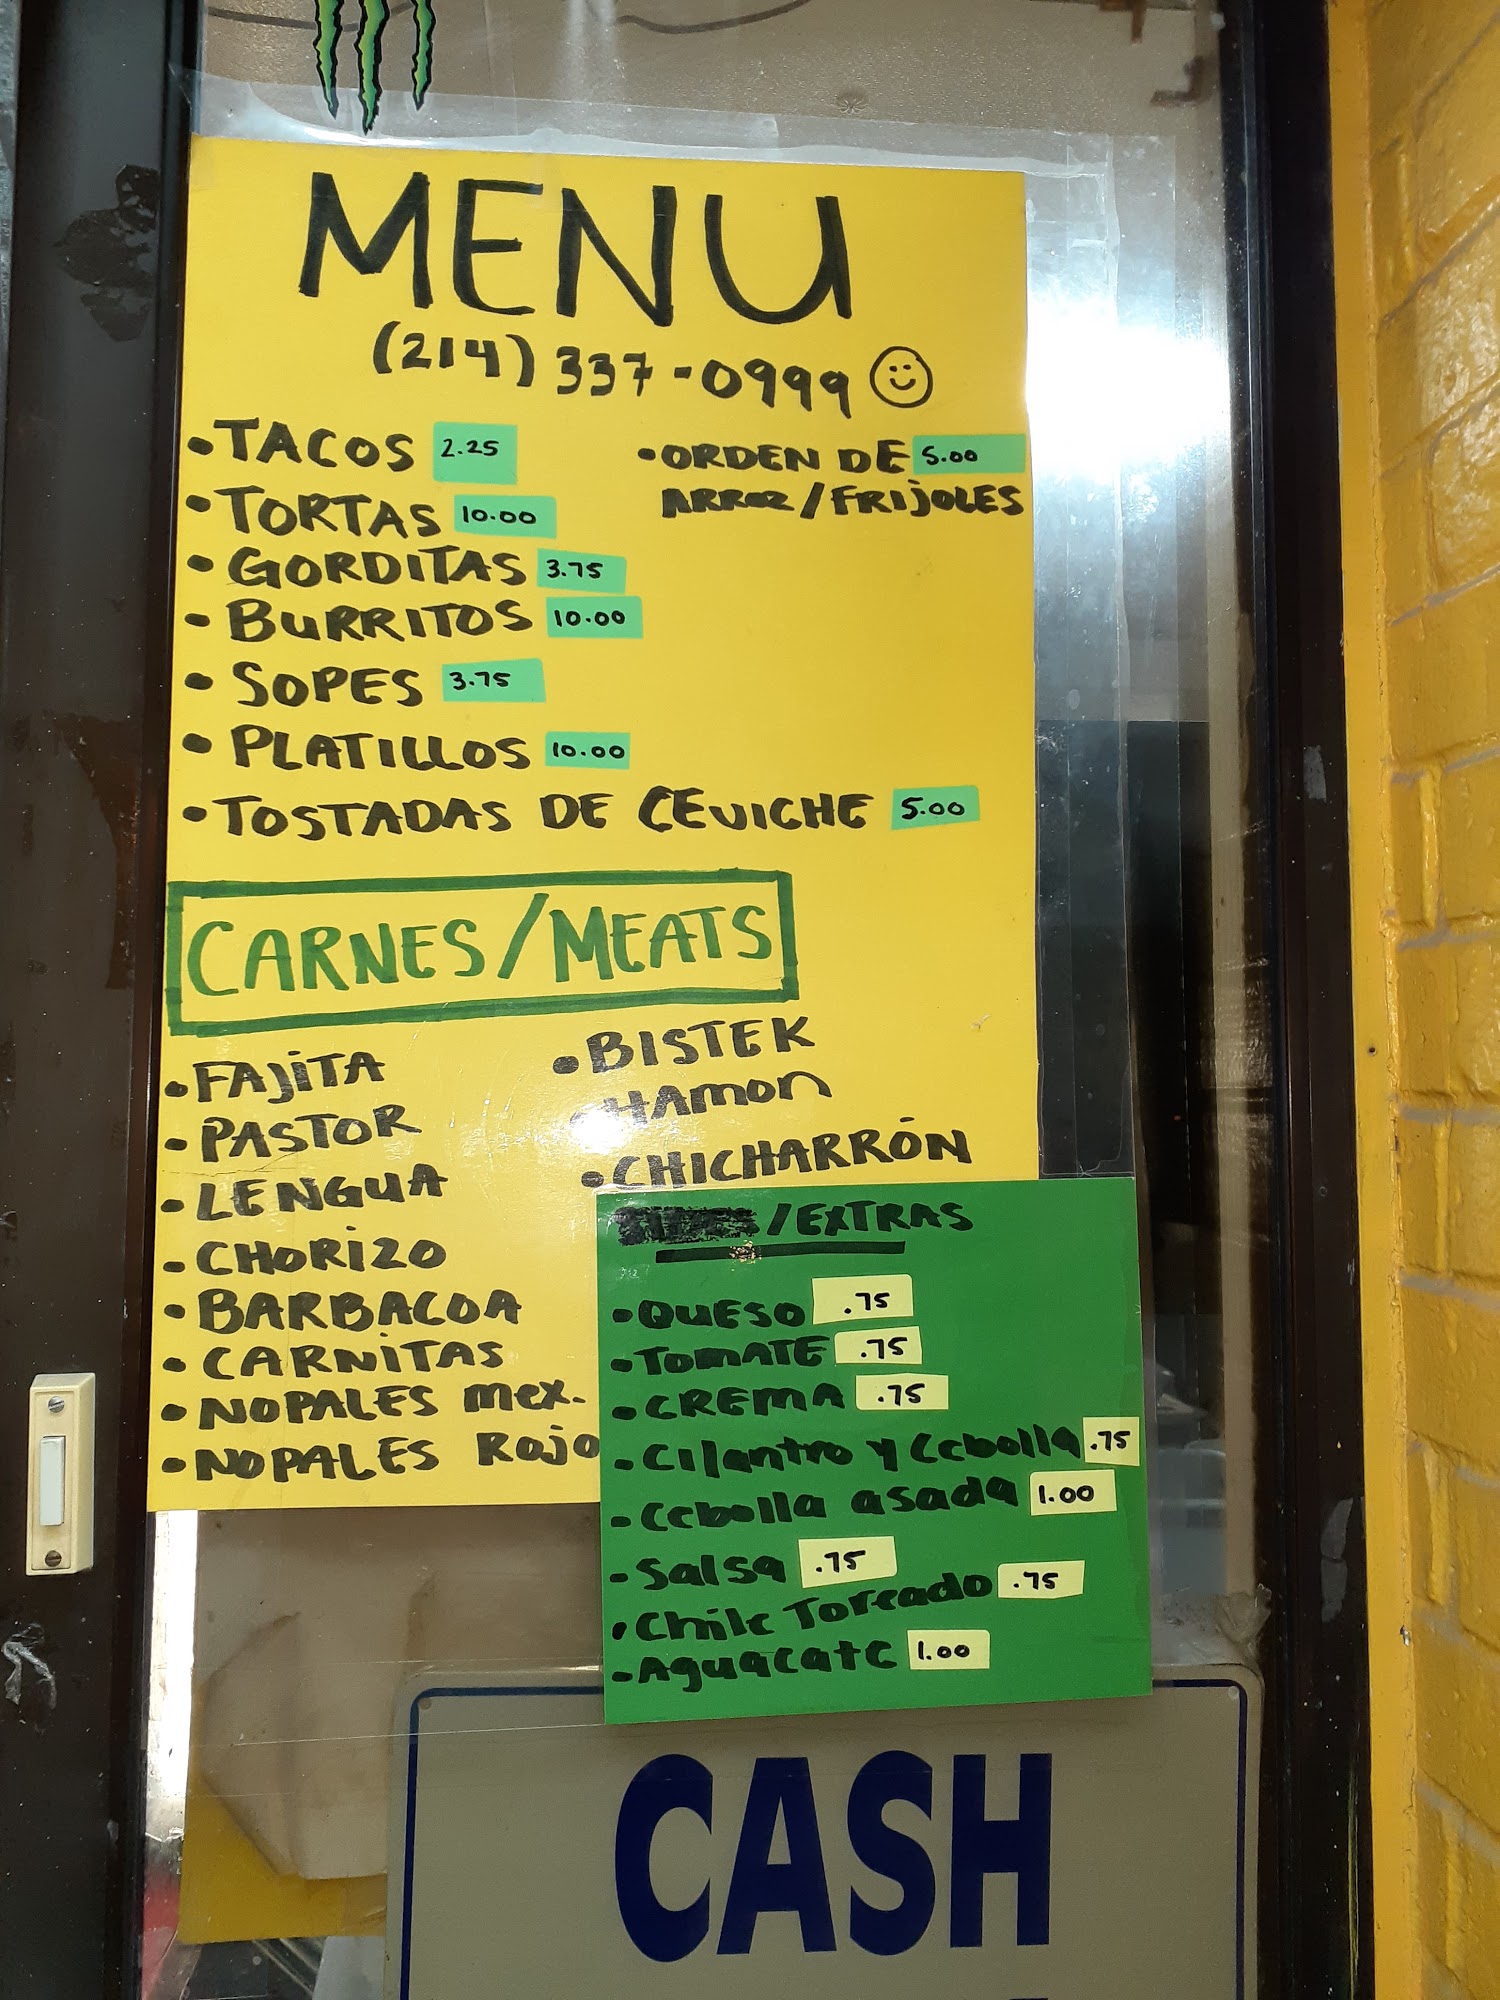 MENU
(214) 337-0999
• TACOS 2.25
• TORTAS 10.00
• GORDITAS 3.75
• BURRITOS 10.00
• SOPES 3.75
• PLATILLOS 10.00
• TOSTADAS DE CEVICHE 5.00
• ORDEN DE 5.00
ARROZ/FRIJOLES
CARNES/MEATS
• FAJITA
• PASTOR
• LENGUA
• CHORIZO
• BARBACOA
• CARNITAS
• NOPALES mex.
• NOPALES ROJO
• BISTEK
• HAMON
• CHICHARRÓN
/EXTRAS
• QUESO .75
• TOMATE .75
• CREMA .75
• Cilantro y Cebolla .75
• Cebolla asada 1.00
• Salsa .75
• Chile Toreado .75
• Aguacate 1.00
CASH